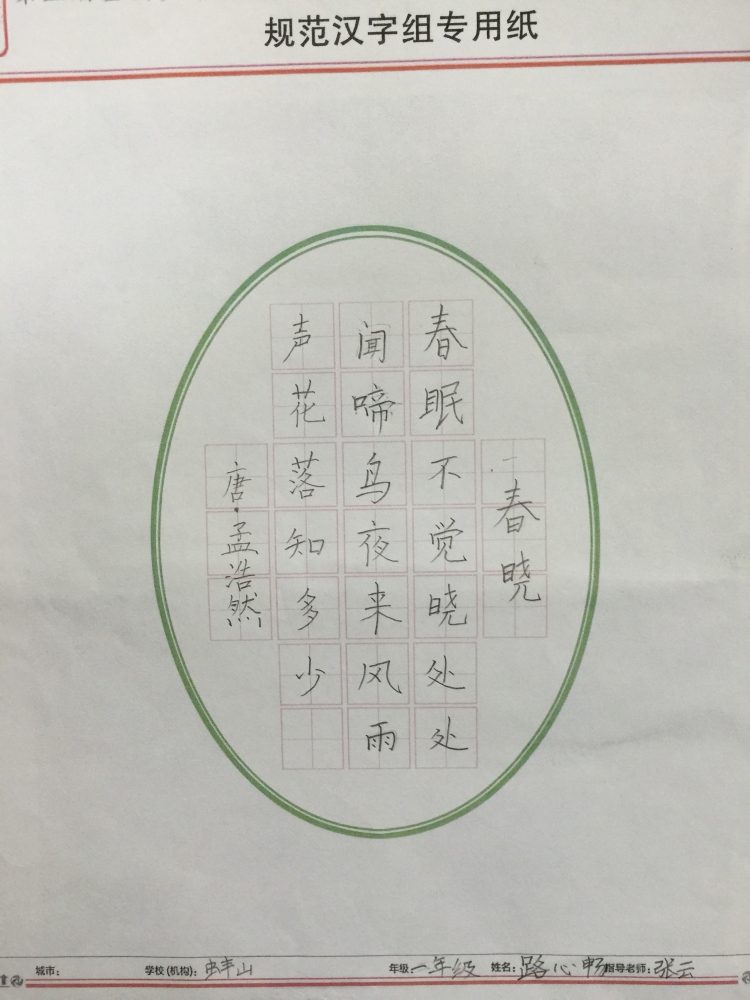 规范汉字组专用纸
春晓
春眠不觉晓处处
闻啼鸟夜来风雨
声花落知多少
唐·孟浩然
城市: 学校(机构): 蚌山 年级: 一年级 姓名: 路心畅 指导老师: 张云